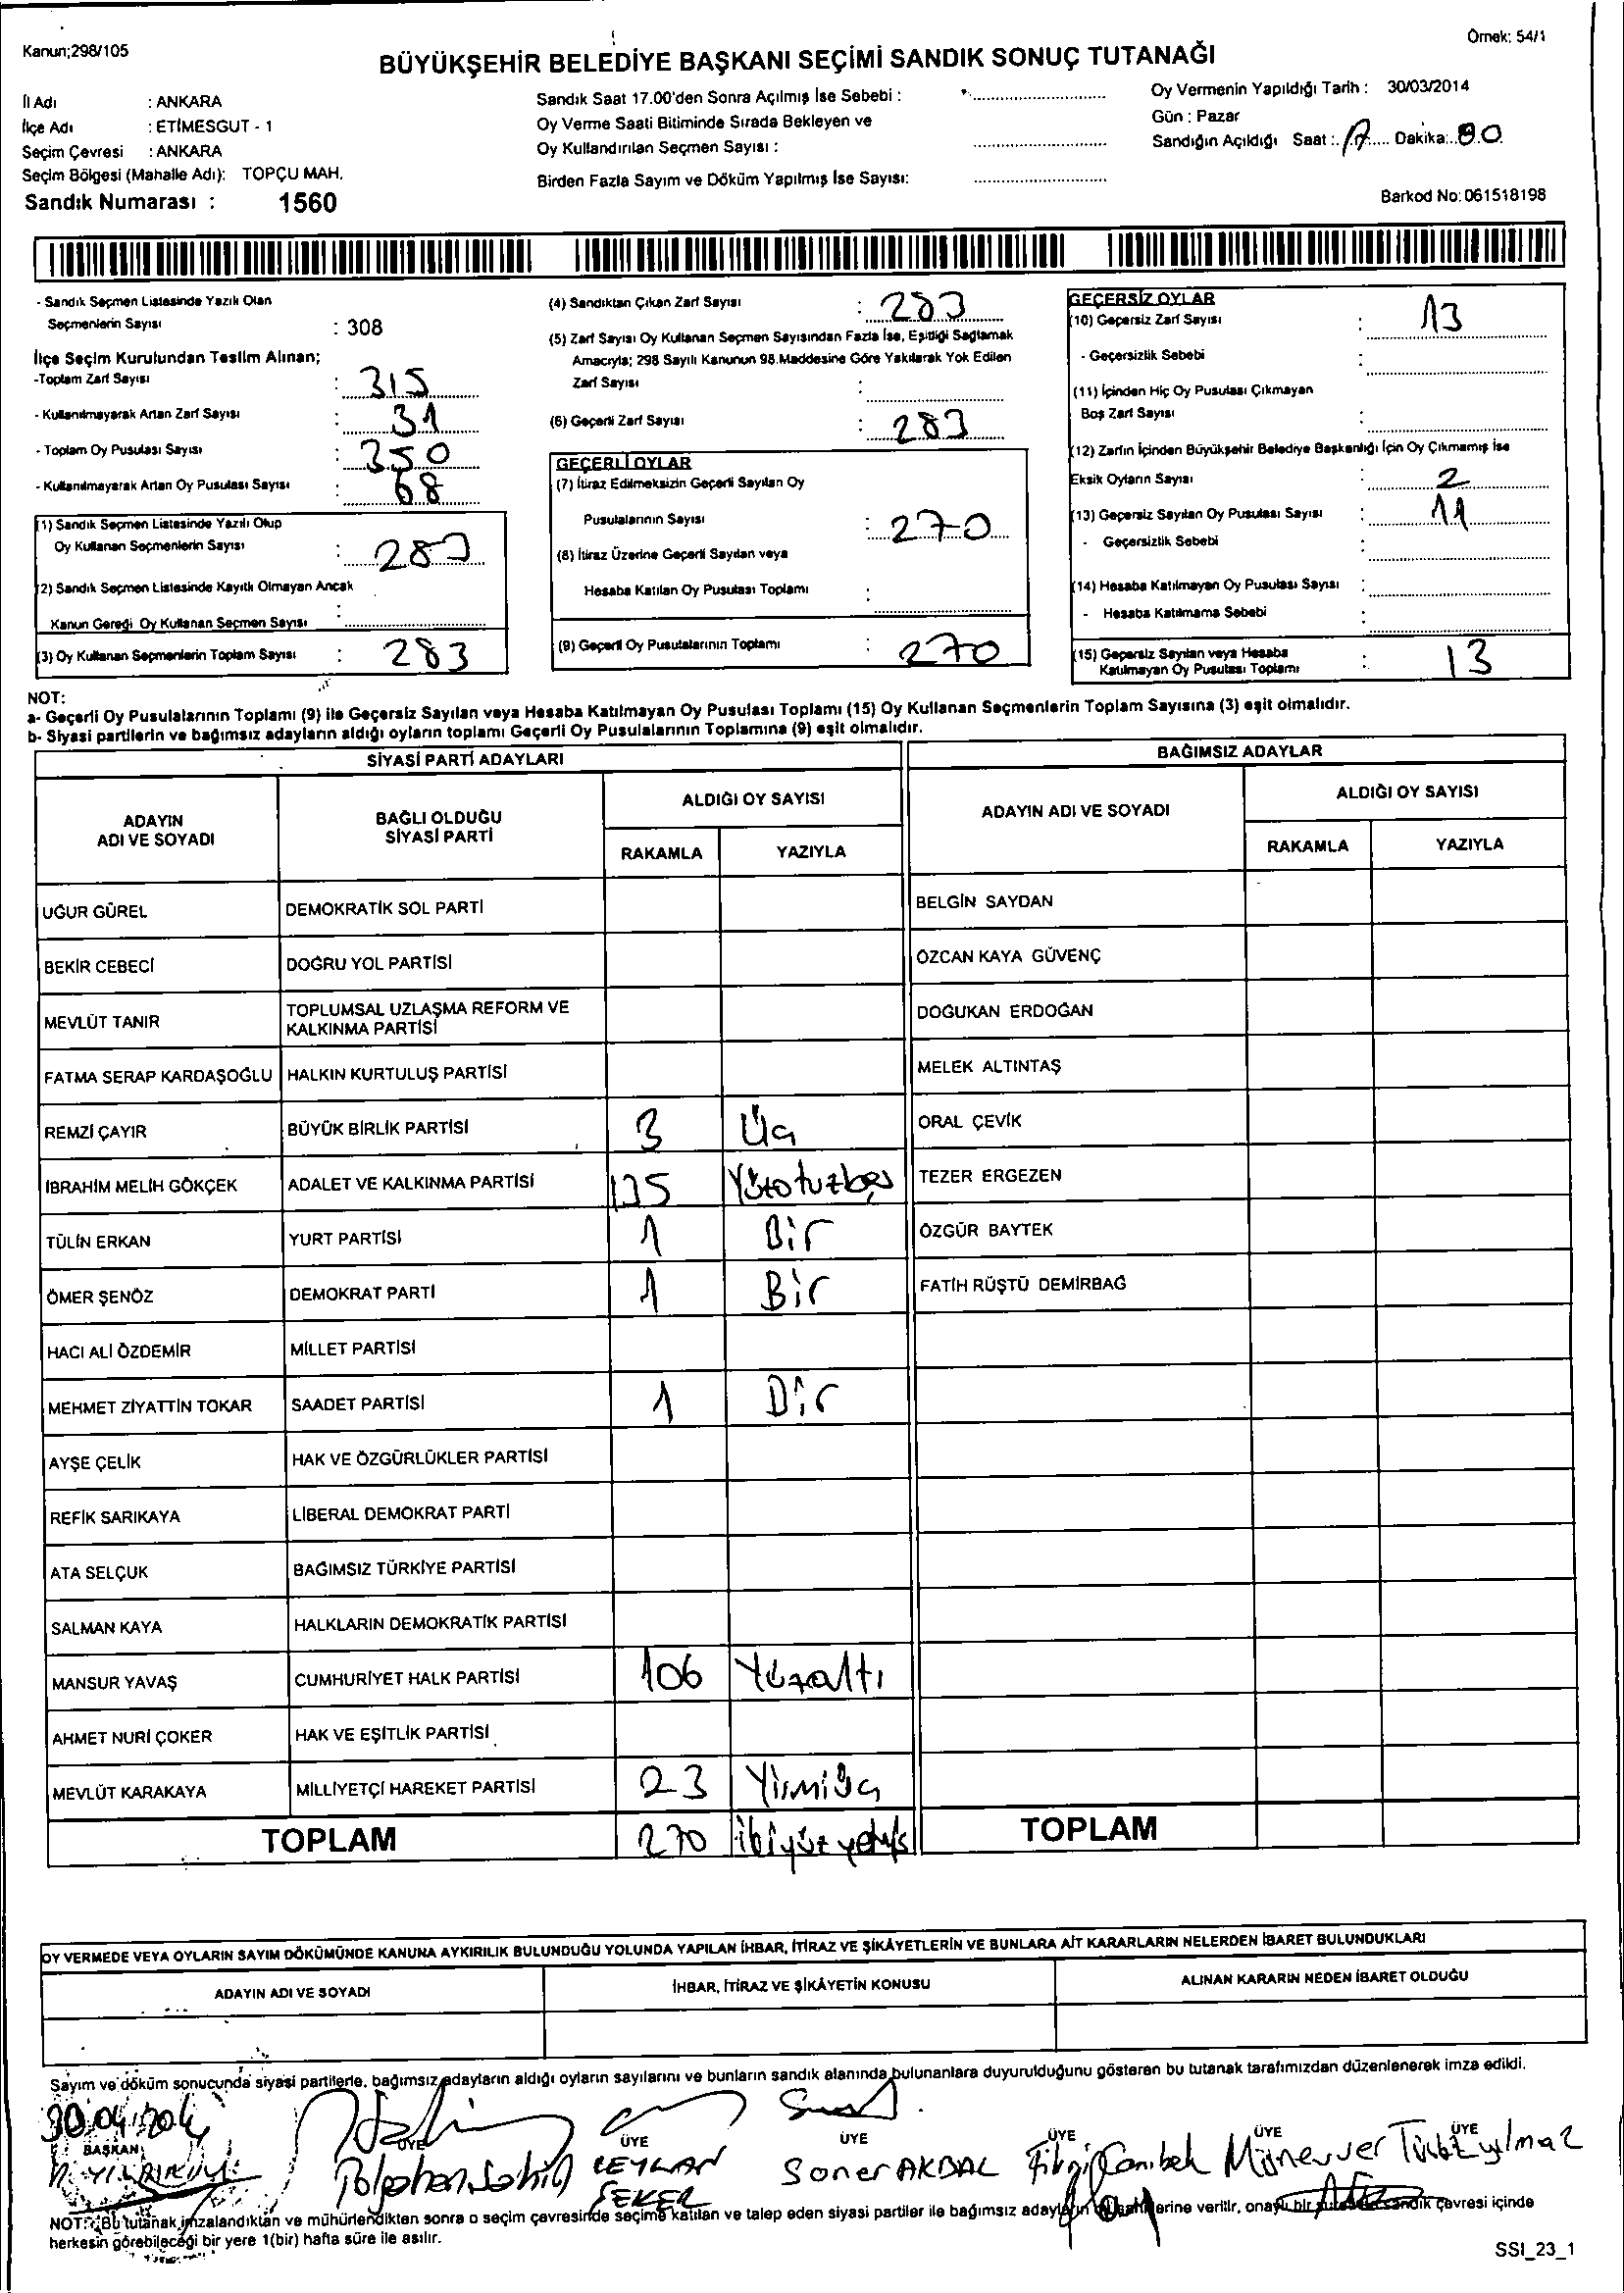 Kanun;298/105
Örnek: 54/1
BÜYÜKŞEHİR BELEDİYE BAŞKANI SEÇİMİ SANDIK SONUÇ TUTANAĞI
İl Adı : ANKARA
İlçe Adı : ETİMESGUT - 1
Seçim Çevresi : ANKARA
Seçim Bölgesi (Mahalle Adı): TOPÇU MAH.
Sandık Numarası : 1560
Sandık Saat 17.00'den Sonra Açılmış İse Sebebi :
Oy Verme Saati Bitiminde Sırada Bekleyen ve
Oy Kullandırılan Seçmen Sayısı :
Birden Fazla Sayım ve Döküm Yapılmış İse Sayısı:
Oy Vermenin Yapıldığı Tarih : 30/03/2014
Gün : Pazar
Sandığın Açıldığı Saat : 17 Dakika:
Barkod No: 061518198
- Sandık Seçmen Listesinde Yazılı Olan
Seçmenlerin Sayısı : 308
İlçe Seçim Kurulundan Teslim Alınan;
-Toplam Zarf Sayısı : 315
- Kullanılmayarak Artan Zarf Sayısı : 31
- Toplam Oy Pusulası Sayısı : 350
- Kullanılmayarak Artan Oy Pusulası Sayısı : 68
(1) Sandık Seçmen Listesinde Yazılı Olup
Oy Kullanan Seçmenlerin Sayısı : 283
(2) Sandık Seçmen Listesinde Kayıtlı Olmayan Ancak
Kanun Gereği Oy Kullanan Seçmen Sayısı :
(3) Oy Kullanan Seçmenlerin Toplam Sayısı : 283
(4) Sandıktan Çıkan Zarf Sayısı : 283
(5) Zarf Sayısı Oy Kullanan Seçmen Sayısından Fazla İse, Eşitliği Sağlamak
Amacıyla; 298 Sayılı Kanunun 98.Maddesine Göre Yakılarak Yok Edilen
Zarf Sayısı :
(6) Geçerli Zarf Sayısı : 283
GEÇERLİ OYLAR
(7) İtiraz Edilmeksizin Geçerli Sayılan Oy
Pusulalarının Sayısı : 270
(8) İtiraz Üzerine Geçerli Sayılan veya
Hesaba Katılan Oy Pusulası Toplamı :
(9) Geçerli Oy Pusulalarının Toplamı : 270
GEÇERSİZ OYLAR
(10) Geçersiz Zarf Sayısı : 13
- Geçersizlik Sebebi :
(11) İçinden Hiç Oy Pusulası Çıkmayan
Boş Zarf Sayısı :
(12) Zarfın İçinden Büyükşehir Belediye Başkanlığı İçin Oy Çıkmamış İse
Eksik Oyların Sayısı : 2
(13) Geçersiz Sayılan Oy Pusulası Sayısı : 11
- Geçersizlik Sebebi :
(14) Hesaba Katılmayan Oy Pusulası Sayısı :
- Hesaba Katılmama Sebebi :
(15) Geçersiz Sayılan veya Hesaba
Katılmayan Oy Pusulası Toplamı : 13
NOT:
a- Geçerli Oy Pusulalarının Toplamı (9) ile Geçersiz Sayılan veya Hesaba Katılmayan Oy Pusulası Toplamı (15) Oy Kullanan Seçmenlerin Toplam Sayısına (3) eşit olmalıdır.
b- Siyasi partilerin ve bağımsız adayların aldığı oyların toplamı Geçerli Oy Pusulalarının Toplamına (9) eşit olmalıdır.
SİYASİ PARTİ ADAYLARI
ADAYIN
ADI VE SOYADI
BAĞLI OLDUĞU
SİYASİ PARTİ
ALDIĞI OY SAYISI
RAKAMLA YAZIYLA
BAĞIMSIZ ADAYLAR
ADAYIN ADI VE SOYADI
ALDIĞI OY SAYISI
RAKAMLA YAZIYLA
UĞUR GÜREL DEMOKRATİK SOL PARTİ BELGİN SAYDAN
BEKİR CEBECİ DOĞRU YOL PARTİSİ ÖZCAN KAYA GÜVENÇ
MEVLÜT TANIR TOPLUMSAL UZLAŞMA REFORM VE
KALKINMA PARTİSİ DOĞUKAN ERDOĞAN
FATMA SERAP KARDAŞOĞLU HALKIN KURTULUŞ PARTİSİ MELEK ALTINTAŞ
REMZİ ÇAYIR BÜYÜK BİRLİK PARTİSİ 3 Üç ORAL ÇEVİK
İBRAHİM MELİH GÖKÇEK ADALET VE KALKINMA PARTİSİ 135 Yüzotuzbeş TEZER ERGEZEN
TÜLİN ERKAN YURT PARTİSİ 1 Bir ÖZGÜR BAYTEK
ÖMER ŞENÖZ DEMOKRAT PARTİ 1 Bir FATİH RÜŞTÜ DEMİRBAĞ
HACI ALİ ÖZDEMİR MİLLET PARTİSİ
MEHMET ZİYATTİN TOKAR SAADET PARTİSİ 1 Bir
AYŞE ÇELİK HAK VE ÖZGÜRLÜKLER PARTİSİ
REFİK SARIKAYA LİBERAL DEMOKRAT PARTİ
ATA SELÇUK BAĞIMSIZ TÜRKİYE PARTİSİ
SALMAN KAYA HALKLARIN DEMOKRATİK PARTİSİ
MANSUR YAVAŞ CUMHURİYET HALK PARTİSİ 106 Yüzaltı
AHMET NURİ ÇOKER HAK VE EŞİTLİK PARTİSİ
MEVLÜT KARAKAYA MİLLİYETÇİ HAREKET PARTİSİ 23 Yirmiüç
TOPLAM 270 ikiyüz yetmiş TOPLAM
OY VERMEDE VEYA OYLARIN SAYIM DÖKÜMÜNDE KANUNA AYKIRILIK BULUNDUĞU YOLUNDA YAPILAN İHBAR, İTİRAZ VE ŞİKÂYETLERİN VE BUNLARA AİT KARARLARIN NELERDEN İBARET BULUNDUKLARI
ADAYIN ADI VE SOYADI İHBAR, İTİRAZ VE ŞİKÂYETİN KONUSU ALINAN KARARIN NEDEN İBARET OLDUĞU
Sayım ve döküm sonucunda siyasi partilerle, bağımsız adayların aldığı oyların sayılarını ve bunların sandık alanında bulunanlara duyurulduğunu gösteren bu tutanak tarafımızdan düzenlenerek imza edildi.
BAŞKAN ÜYE ÜYE ÜYE ÜYE ÜYE ÜYE
CEYLAN Soner AKDAL Canıbek Münevver Türkyılmaz
ŞEKER
NOT: Bu tutanak imzalandıktan ve mühürlendikten sonra o seçim çevresinde seçime katılan ve talep eden siyasi partiler ile bağımsız adayların verilir, onaylı bir sandık çevresi içinde
herkesin görebileceği bir yere 1(bir) hafta süre ile asılır.
SSI_23_1